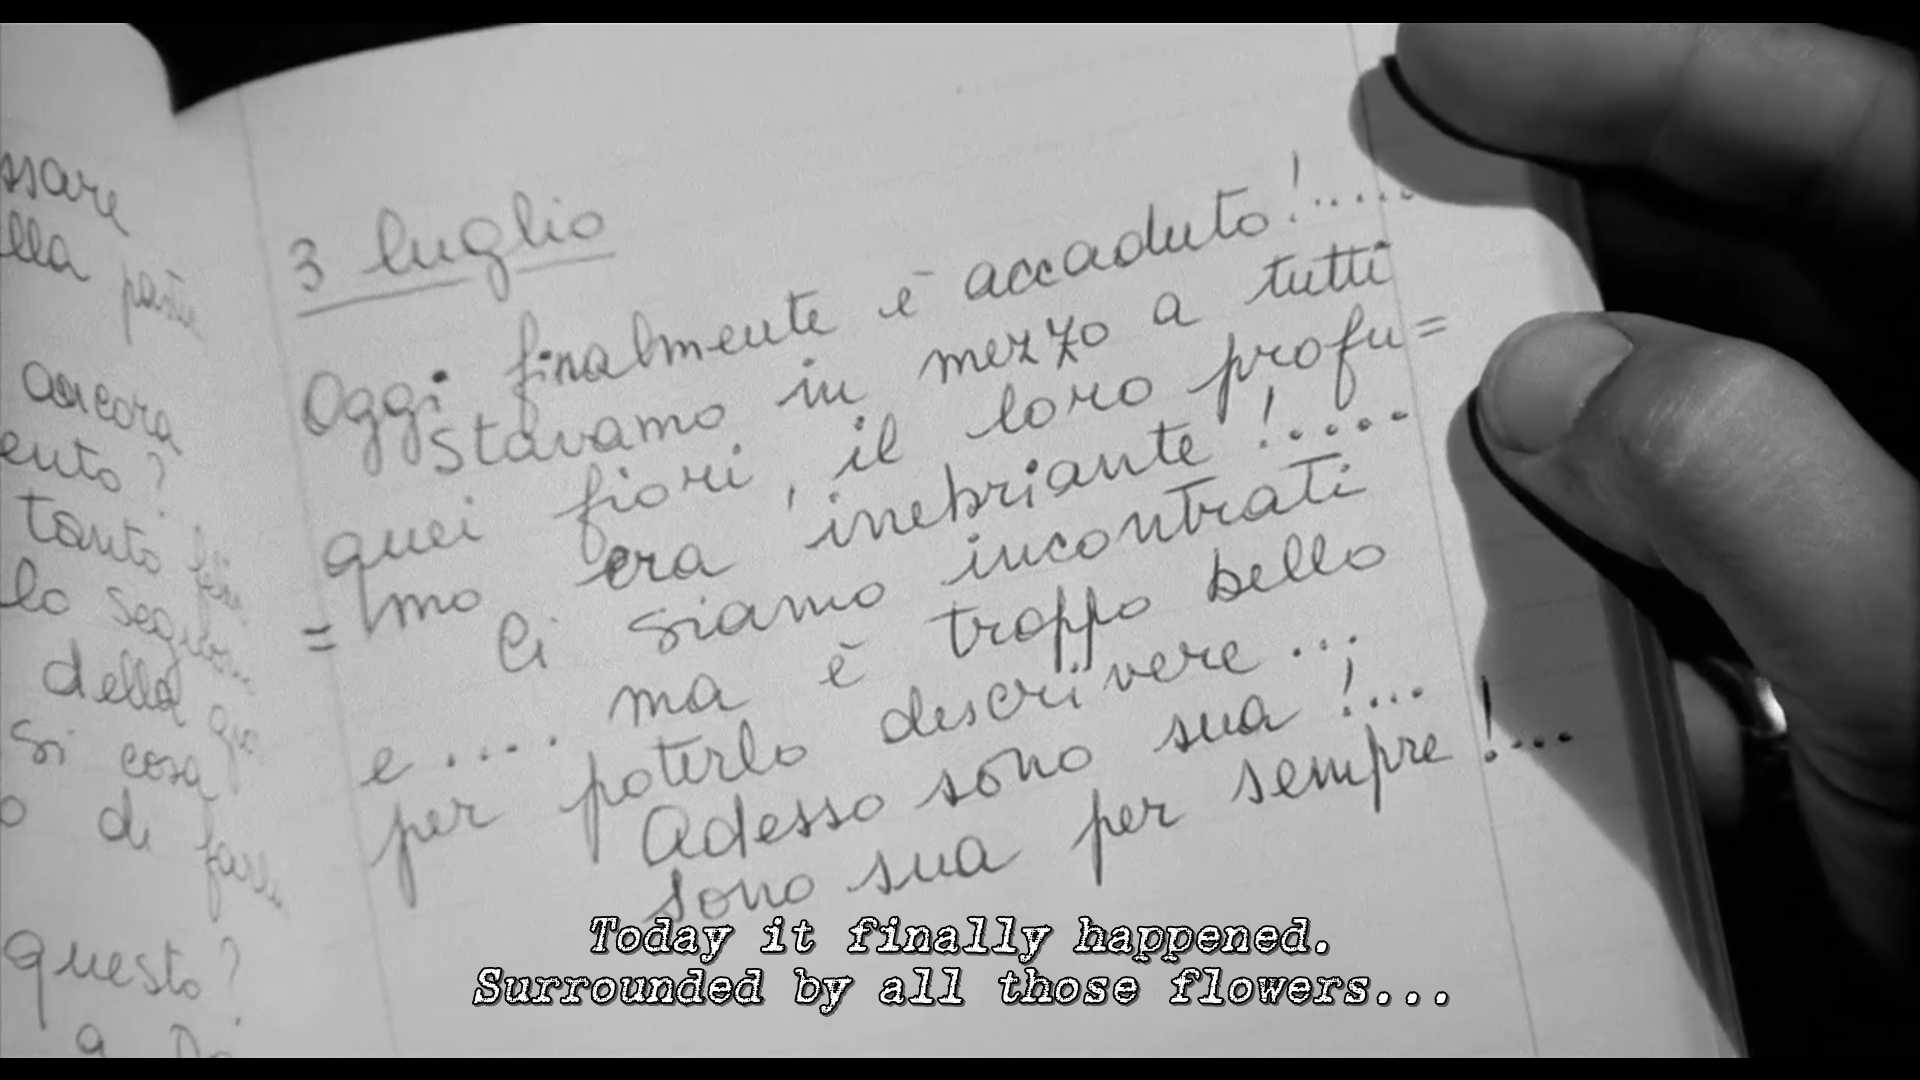 ssare
lla parte
ancora
ento?
tanto
lo
della
si cosa
o di
questo?
a
3 luglio
Oggi finalmente è accaduto!.....
stavamo in mezzo a tutti
quei fiori, il loro profu=
=mo era inebriante!.....
Ci siamo incontrati
e.... ma è troppo bello
per poterlo descrivere...
Adesso sono sua!...
sono sua per sempre!...
Today it finally happened.
Surrounded by all those flowers...